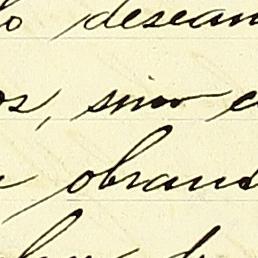 lo desean
os, sino e
a obrand